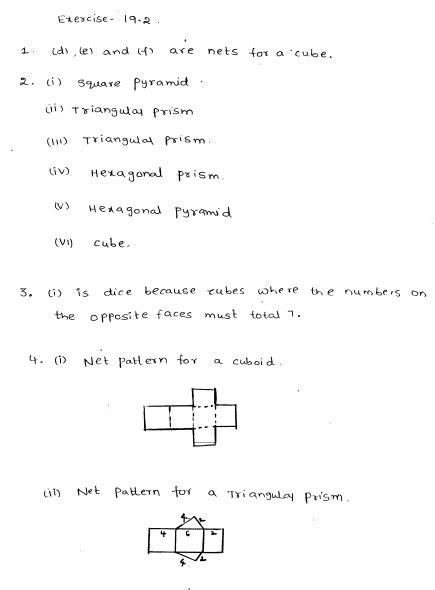 Exercise- 19.2.
1. (d), (e) and (f) are nets for a cube.
2. (i) Square Pyramid.
(ii) Triangular prism
(III) Triangular prism.
(iv) Hexagonal prism.
(V) Hexagonal pyramid
(VI) cube.
3. (i) is dice because cubes where the numbers on
the opposite faces must total 7.
4. (i) Net pattern for a cuboid.
(ii) Net Pattern for a Triangular prism.
4 2
4 6 2
4 2